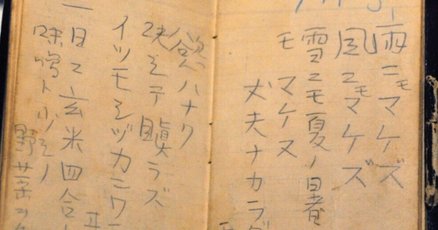 雨ニモマケズ
風ニモマケズ
雪ニモ夏ノ暑
モ マケヌ
丈夫ナカラダ
慾ハナク
決シテ瞋ラズ
イツモシヅカニワ
一日ニ玄米四合ト
味噌ト少シノ
野菜ヲ